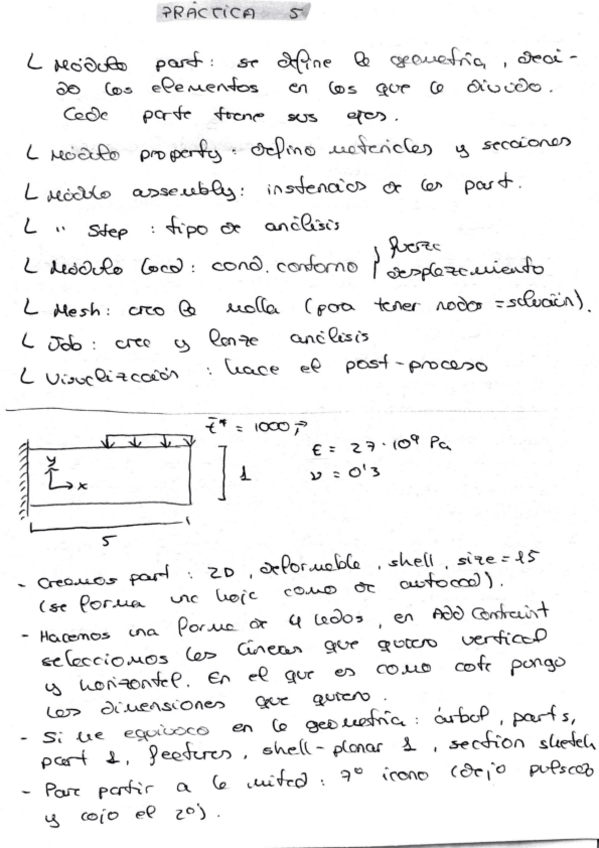 PRÁCTICA 5
└ Módulo part: se define la geometría, deci-
do los elementos en los que lo divido.
Cada parte tiene sus ejes.
└ Módulo property: defino materiales y secciones
└ Módulo assembly: instancias de las part.
└ " Step: tipo de análisis
└ Módulo load: cond. contorno } fuerza
desplazamiento
└ Mesh: creo la malla (para tener nodos = solución).
└ Job: crea y lanza análisis
└ Visualización: hace el post-proceso
t̄* = 1000
E = 27·10⁹ Pa
ν = 0'3
y
x
1
5
- Creamos part: 2D, deformable, shell, size = 15
(se forma una hoja como de autocad).
- Hacemos una forma de 4 lados, en Add Contraint
seleccionamos las líneas que quiero vertical
y horizontal. En el que es como cota pongo
las dimensiones que quiero.
- Si me equivoco en la geometría: árbol, parts,
part 1, features, shell-planar 1, section sketch
- Para partir a la mitad: 7º icono (dejo pulsado
y cojo el 2º).